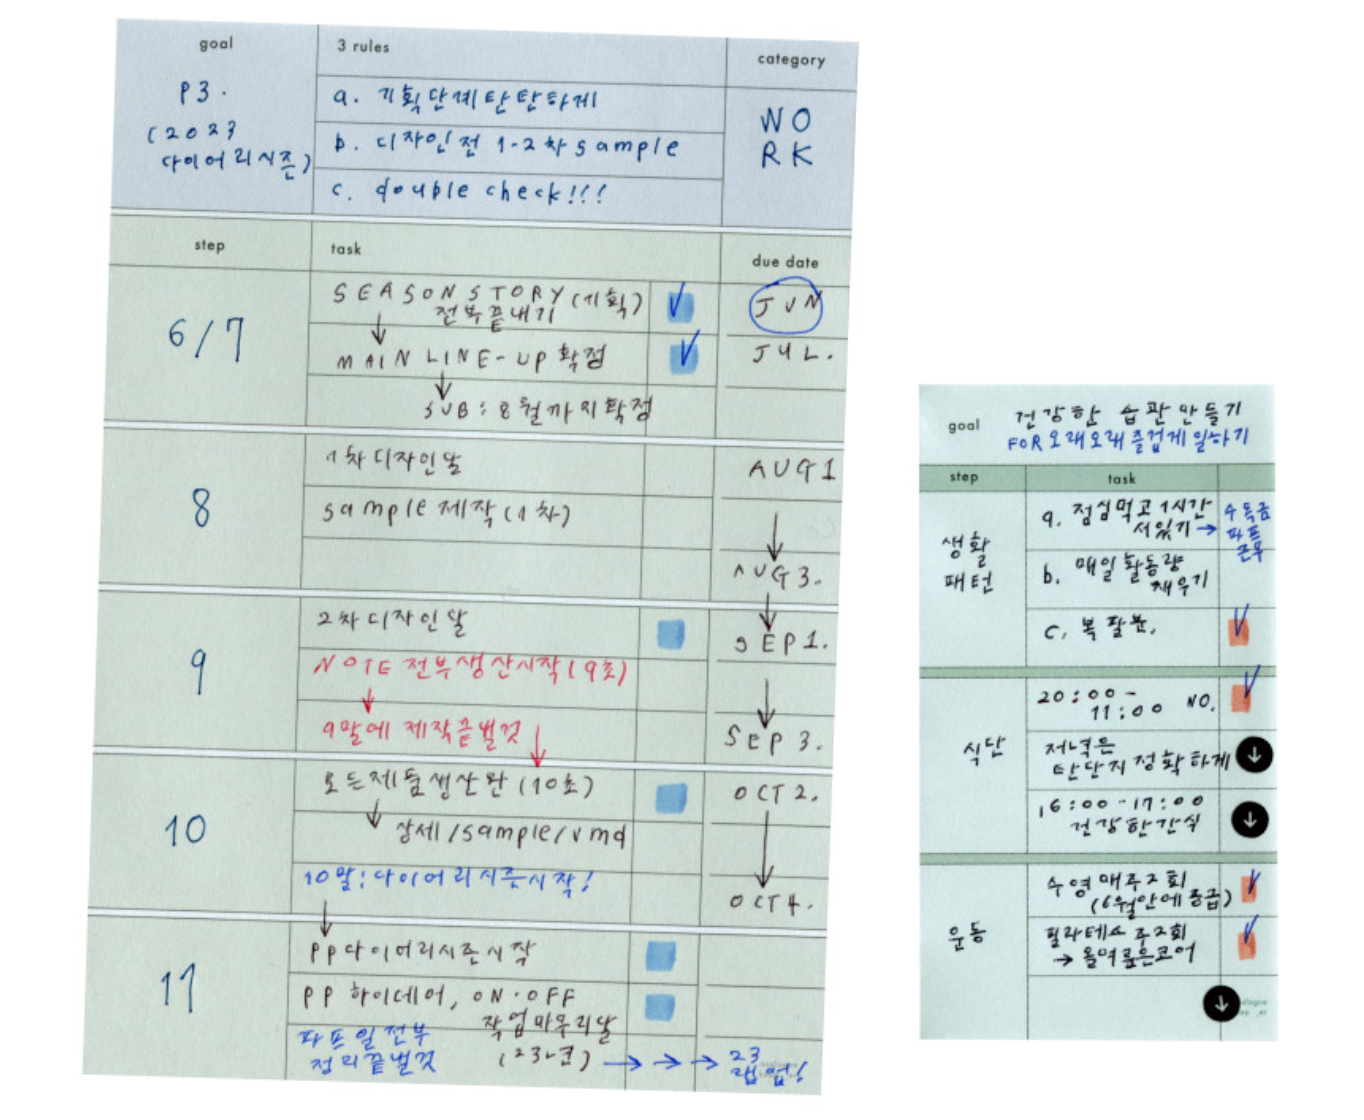 goal
P3.
(2023
다이어리시즌)
3 rules
a. 기획단계탄탄하게
b. 디자인전 1-2차 sample
c. double check!!!
category
WO
RK
step
task
due date
6/7
SEASON STORY (기획)
전부끝내기
JUN
MAIN LINE-UP 확정
JUL.
SUB: 8월까지확정
8
1차디자인달
AUG1
sample 제작(1차)
AUG3.
9
2차디자인달
SEP1.
NOTE 전부생산시작(9초)
9말에 제작끝낼것
SEP3.
10
모든제품생산완(10초)
OCT2.
상세/sample/vmd
10말:다이어리시즌시작!
OCT4.
11
pp다이어리시즌시작
PP 하이데어, ON·OFF
작업마무리달
(23년)
파프일전부
정리끝낼것
23
랩업!
goal
건강한 습관만들기
FOR 오래오래즐겁게일하기
step
task
생활
패턴
a. 점심먹고1시간
서있기→
수목금
파프
근무
b. 매일활동량
채우기
c. 복팔분.
식단
20:00-
11:00 NO.
저녁은
탄단지정확하게
16:00-17:00
건강한간식
운동
수영매주2회
(6월안에중급)
필라테스주2회
→